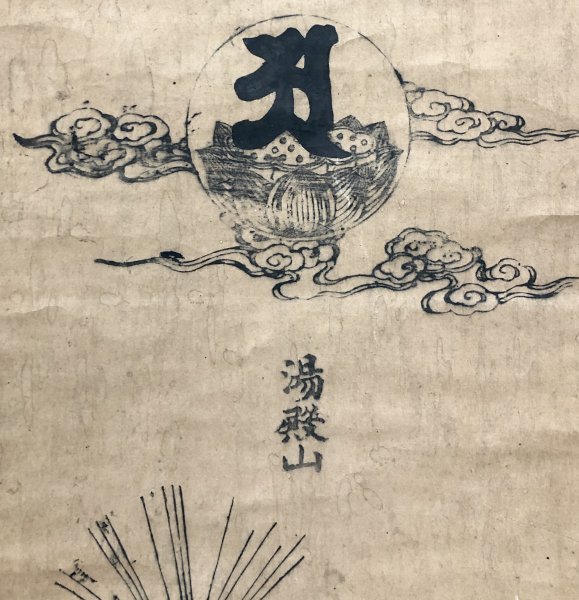 𑖀
湯殿山